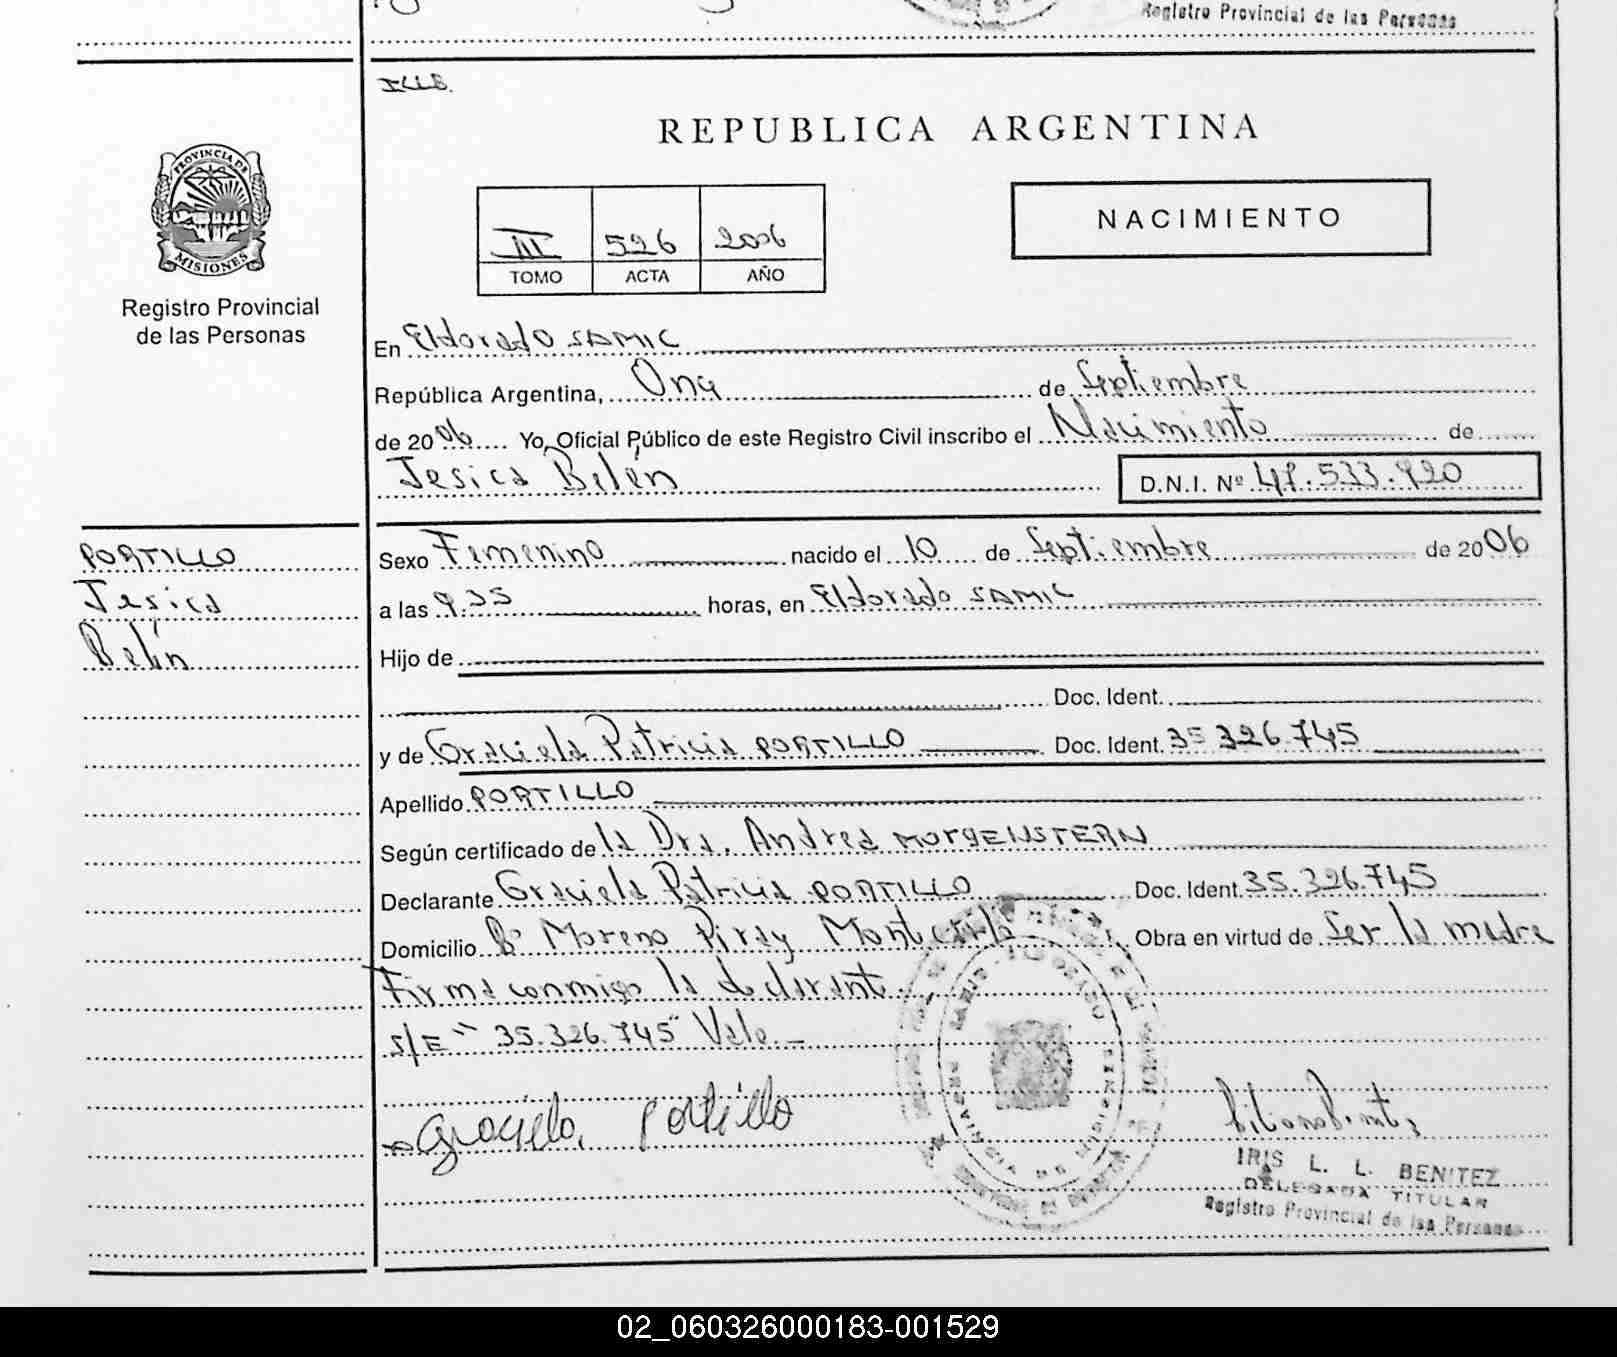 Registro Provincial de las Personas
ILLB.
REPUBLICA ARGENTINA
PROVINCIA DE
MISIONES
Registro Provincial
de las Personas
III 526 2006
TOMO ACTA AÑO
NACIMIENTO
En Eldorado SAMIC
República Argentina, Once de Septiembre
de 2006 Yo, Oficial Público de este Registro Civil inscribo el Nacimiento de
Jesica Belén D.N.I. Nº 47.533.920
PORTILLO
Jesica
Belén
Sexo Femenino nacido el 10 de Septiembre de 2006
a las 9.35 horas, en Eldorado SAMIC
Hijo de
Doc. Ident.
y de Graciela Patricia PORTILLO Doc. Ident. 35 326.745
Apellido PORTILLO
Según certificado de la Dra. Andrea MORGENSTERN
Declarante Graciela Patricia PORTILLO Doc. Ident. 35.326.745
Domicilio Bº Moreno Piray Montecarlo Obra en virtud de Ser la madre
Firma conmigo la declarante
S/E "35.326.745" Vale.-
Graciela Portillo
IRIS L. L. BENITEZ
DELEGADA TITULAR
Registro Provincial de las Personas
02_060326000183-001529